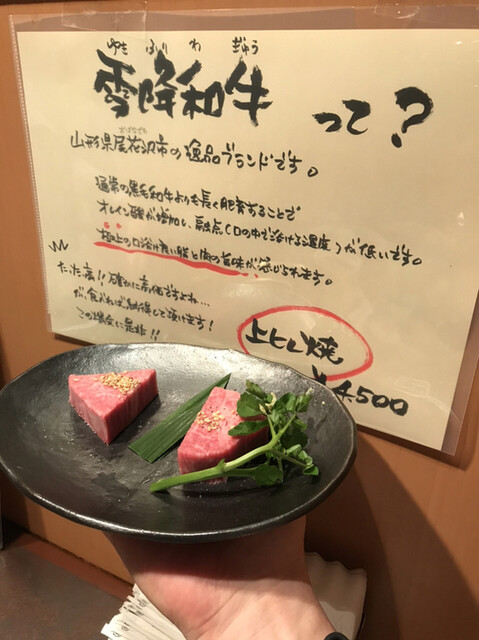 ゆき ぶ わ ぎゅう
雪降和牛 って？
おばなざわ
山形県尾花沢市の逸品ブランドです。
通常の黒毛和牛よりも長く肥育することで
オレイン酸が増加し、融点(口の中で溶ける温度)が低いです。
極上の口溶け良い脂と肉の旨味が感じられます。
たっ、高!! 確かに高価ですよね…
が、食べれば納得して頂けます!
この機会に是非!!
上ヒレ焼
¥4,500